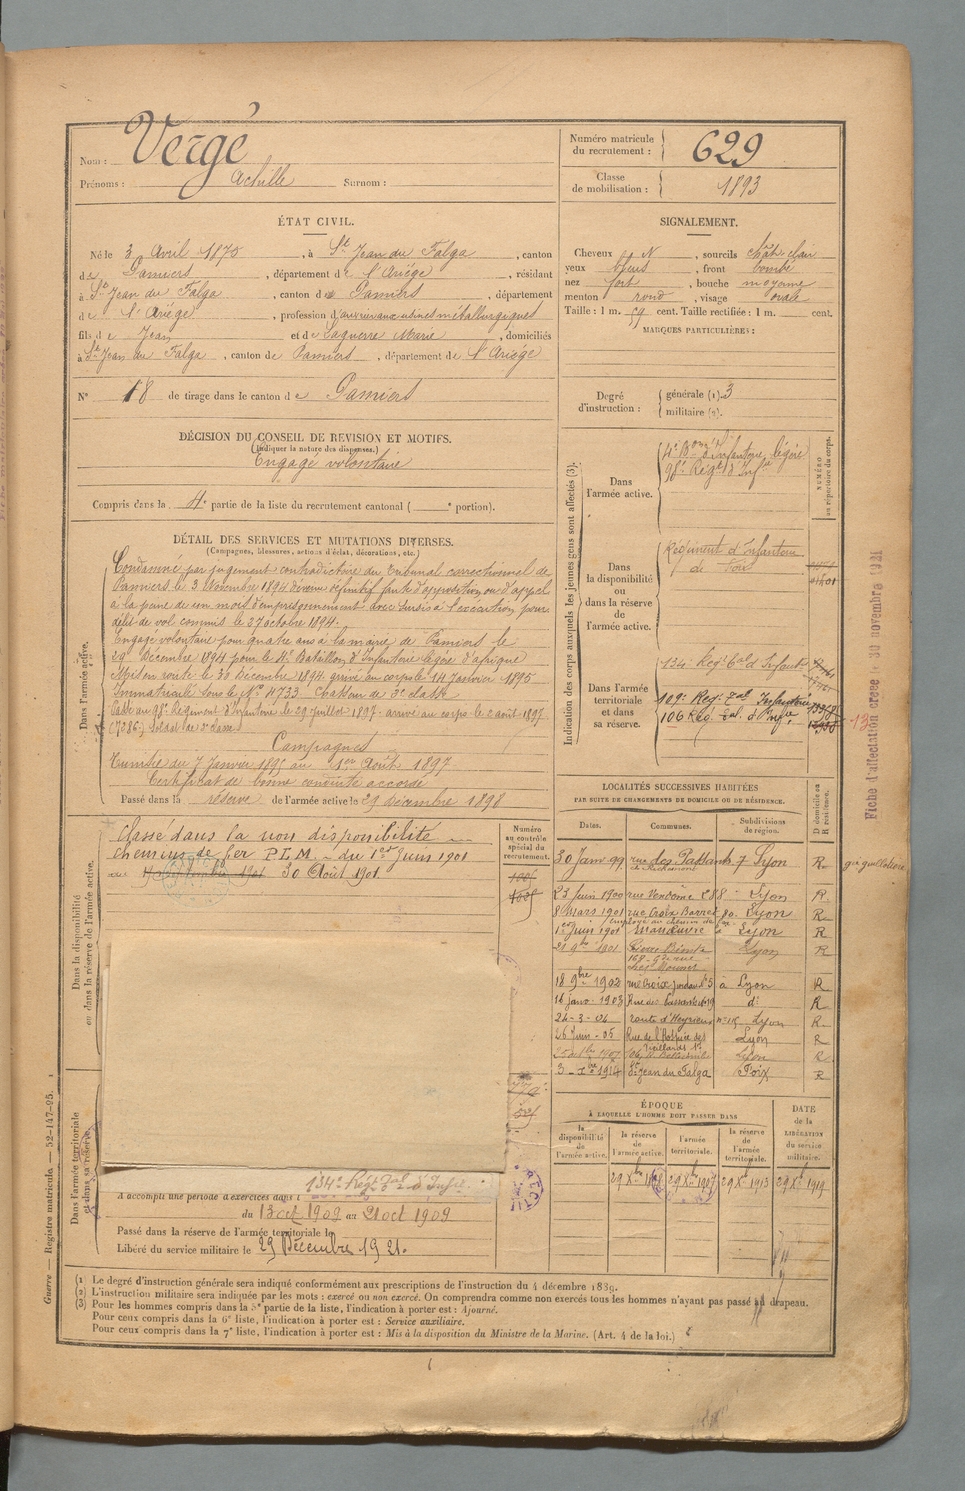 Nom : Vergé
Prénoms : Achille Surnom :
Numéro matricule
du recrutement : 629
Classe
de mobilisation : 1893
ÉTAT CIVIL.
Né le 3 Avril 1870, à St Jean du Falga, canton
de Pamiers, département de l'Ariége, résidant
à St Jean du Falga, canton de Pamiers, département
de l'Ariége, profession d'ouvrier aux usines métallurgiques
fils de Jean et de Laguerre Marie, domiciliés
à St Jean du Falga, canton de Pamiers, département de l'Ariége
N° 18 de tirage dans le canton de Pamiers
SIGNALEMENT.
Cheveux N, sourcils chât. clair
yeux bleus, front bombé
nez fort, bouche moyenne
menton rond, visage ovale
Taille : 1 m. 59 cent. Taille rectifiée : 1 m. cent.
MARQUES PARTICULIÈRES :
Degré
d'instruction :
générale (1). 3
militaire (2).
DÉCISION DU CONSEIL DE REVISION ET MOTIFS.
(Indiquer la nature des dispenses.)
Engagé volontaire
Compris dans la 4e partie de la liste du recrutement cantonal ( e portion).
DÉTAIL DES SERVICES ET MUTATIONS DIVERSES.
(Campagnes, blessures, actions d'éclat, décorations, etc.)
Dans l'armée active.
Condamné par jugement contradictoire du Tribunal correctionnel de
Pamiers le 3 Novembre 1894 devenu définitif faute d'opposition ou d'appel
à la peine de un mois d'emprisonnement avec sursis à l'exécution pour
délit de vol commis le 27 octobre 1894.
Engagé volontaire pour quatre ans à la mairie de Pamiers le
29 Décembre 1894 pour le 4e Bataillon d'Infanterie légère d'afrique
Mis en route le 30 Décembre 1894 arrivé au corps le 14 Janvier 1895
Immatriculé sous le N° 4733 Chasseur de 2e classe
Passé au 98e Régiment d'Infanterie le 29 Juillet 1897. arrivé au corps le 2 août 1897
Soldat de 2e classe
Campagnes
Tunisie du 7 Janvier 1895 au 1er Août 1897
Certificat de bonne conduite accordé
Passé dans la réserve de l'armée active le 29 Décembre 1898
Dans la disponibilité
ou dans la réserve de l'armée active.
Classé dans la non disponibilité
chemins de fer P.L.M. du 1er Juin 1901
au 30 Août 1901
Numéro
au contrôle
spécial du
recrutement.
Dans l'armée territoriale
et dans sa réserve.
134e Régt Tal d'Infie
A accompli une période d'exercices dans l
du 13 oct 1909 au 21 oct 1909
Passé dans la réserve de l'armée territoriale le
Libéré du service militaire le 29 Décembre 1921.
Indication des corps auxquels les jeunes gens sont affectés (3).
NUMÉRO
au répertoire du corps.
Dans
l'armée active.
4e Bon d'Infanterie légère
98e Régt d'Infie
Dans
la disponibilité
ou
dans la réserve
de
l'armée active.
Régiment d'Infanterie
de Foix
Dans l'armée
territoriale
et dans
sa réserve.
134e Régt Tal d'Infant
109e Regt Tal Infanterie
106 Rég. Tal. d'Infie
Fiche d'affectation créée le 30 novembre 1921
LOCALITÉS SUCCESSIVES HABITÉES
PAR SUITE DE CHANGEMENTS DE DOMICILE OU DE RÉSIDENCE.
Dates. Communes. Subdivisions de région. D domicile ou R résidence.
30 Janv. 99 rue des Passants 7 Lyon R
23 Juin 1900 rue Vendôme 288 Lyon R
8 Mars 1901 rue Croix Barret 80 Lyon R
employé au chemin de fer
1er Juin 1901 manœuvre à Lyon R
21 9bre 1901 Lyon R
18 9bre 1902 rue Croix Jordan N°5 à Lyon R
16 janv. 1903 d° R
24-3-04 route d'Heyrieux Lyon R
26 Juin 05 Rue de l'Hospice des Vieillards Lyon R
1907 Lyon R
3 Xbre 1914 St Jean du Falga Foix R
ÉPOQUE
À LAQUELLE L'HOMME DOIT PASSER DANS
la disponibilité de l'armée active.
la réserve de l'armée active.
l'armée territoriale.
la réserve de l'armée territoriale.
DATE de la LIBÉRATION du service militaire.
29 Xbre 1898 29 Xbre 1907 29 Xbre 1913 29 Xbre 1919
Guerre — Registre matricule. — 52-147-95.
(1) Le degré d'instruction générale sera indiqué conformément aux prescriptions de l'instruction du 4 décembre 1889.
(2) L'instruction militaire sera indiquée par les mots : exercé ou non exercé. On comprendra comme non exercés tous les hommes n'ayant pas passé au drapeau.
(3) Pour les hommes compris dans la 5e partie de la liste, l'indication à porter est : Ajourné.
Pour ceux compris dans la 6e liste, l'indication à porter est : Service auxiliaire.
Pour ceux compris dans la 7e liste, l'indication à porter est : Mis à la disposition du Ministre de la Marine. (Art. 4 de la loi.)